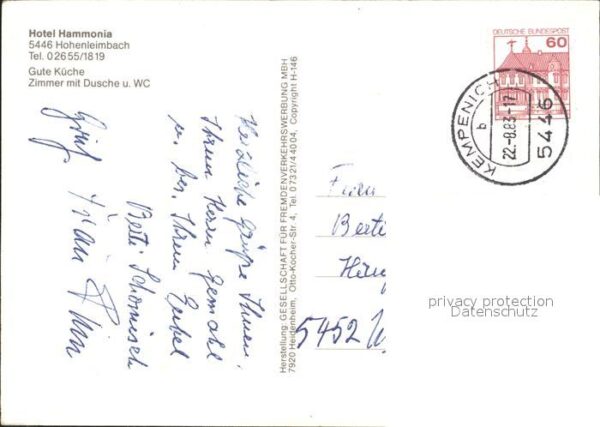 Hotel Hammonia
5446 Hohenleimbach
Tel. 02655/1819
Gute Küche
Zimmer mit Dusche u. WC
Herzliche Grüße Ihnen,
Ihrem Herrn Gemahl
u. bes. Ihrem Enkel
Berti
Herstellung: GESELLSCHAFT FÜR FREMDENVERKEHRSWERBUNG MBH
7920 Heidenheim, Otto-Kocher-Str. 4, Tel. 07321/44004, Copyright H-146
DEUTSCHE BUNDESPOST
60
KEMPENICH
b
22.-8.83-17
5446
Frau
Berti
5452
privacy protection
Datenschutz